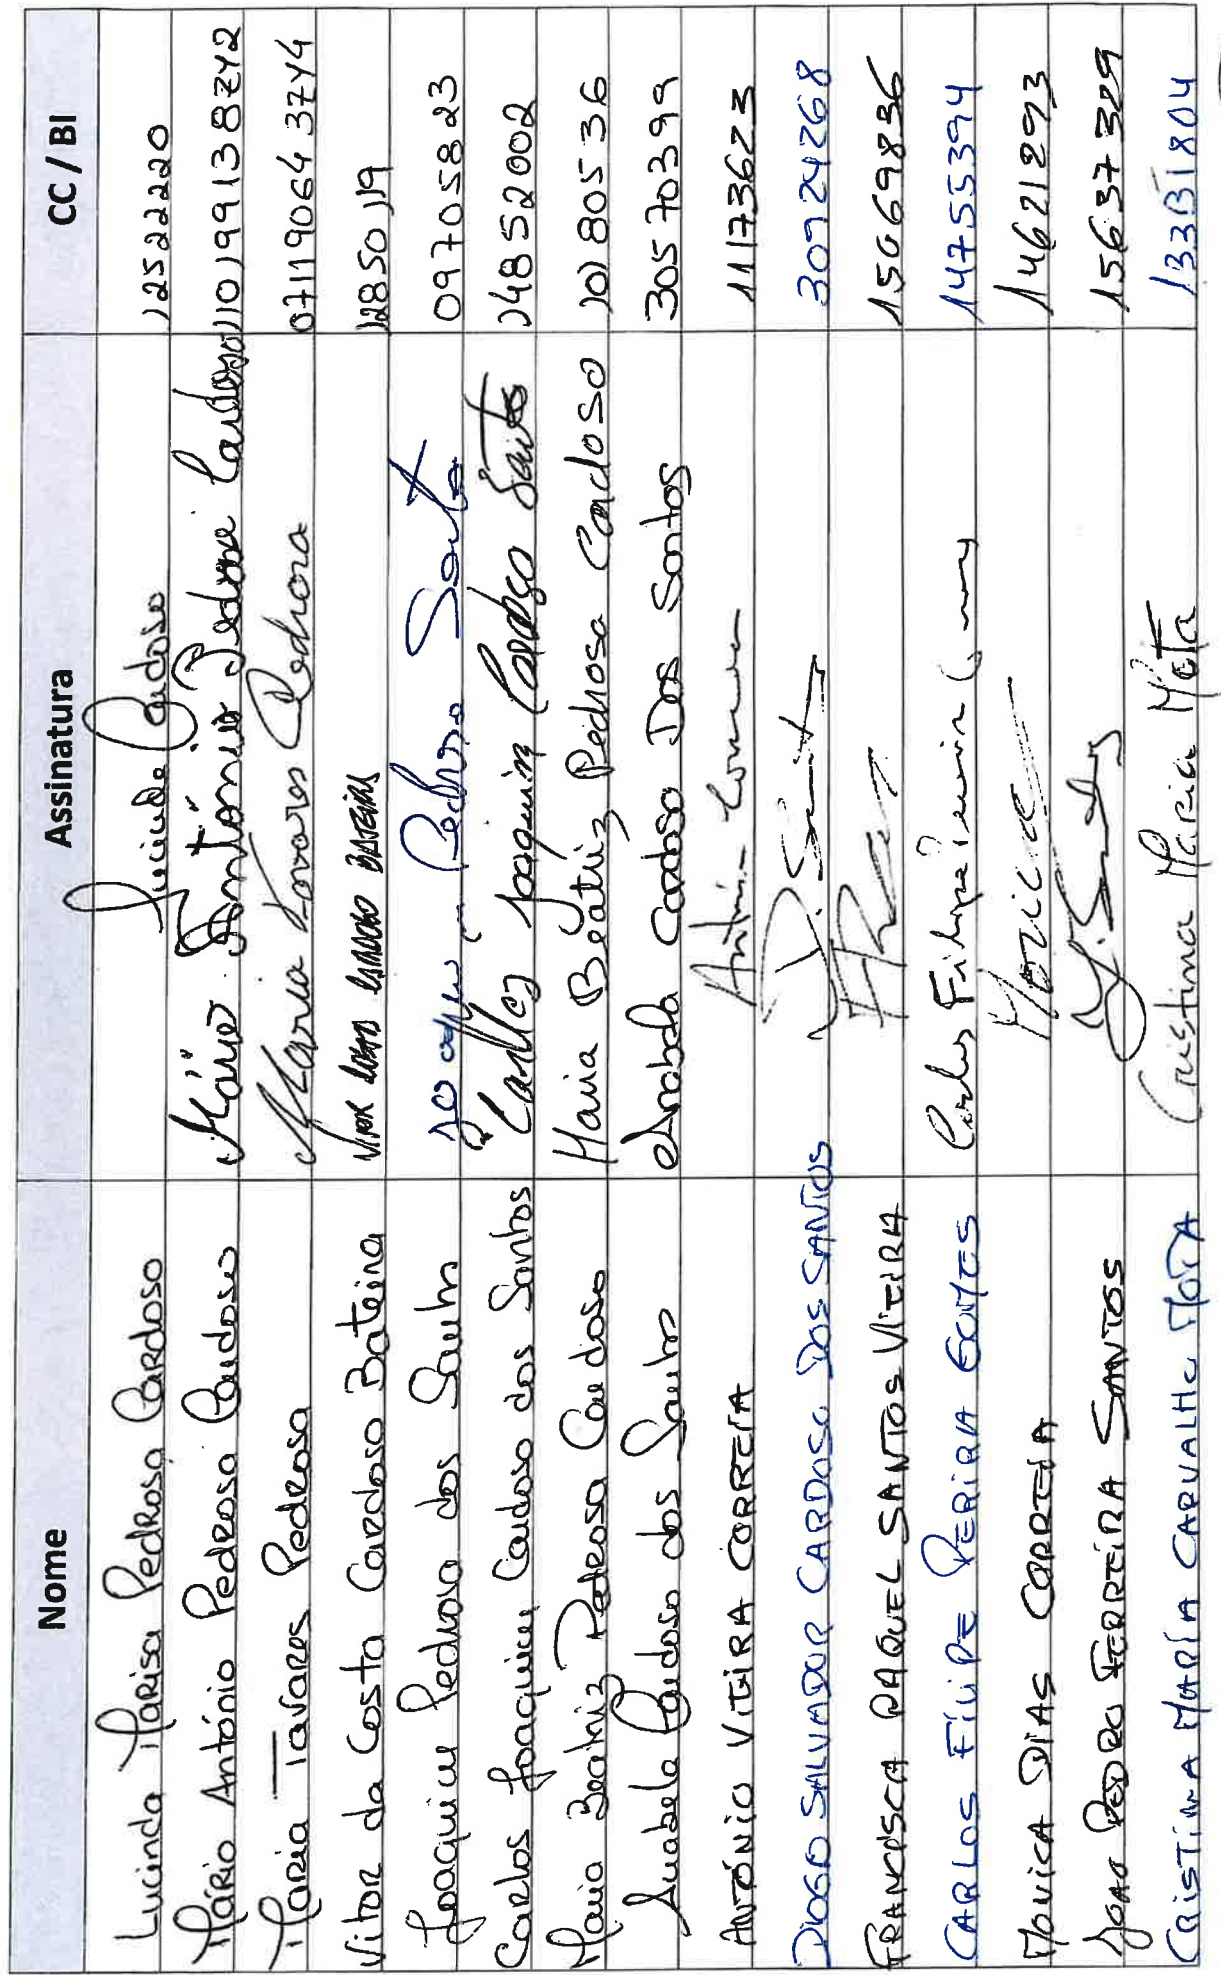 Nome Assinatura CC / BI
Lucinda Marisa Pedrosa Cardoso Lucinda Cardoso 12522220
Mário António Pedrosa Cardoso Mário António Pedrosa Cardoso 110199138ZY2
Maria Tavares Pedrosa Maria Tavares Pedrosa 07119064 3ZY4
Vitor da Costa Cardoso Bateira 12850119
Joaquim Pedrosa dos Santos Joaquim Pedrosa Santos 09705823
Carlos Joaquim Cardoso dos Santos Carlos Joaquim Cardoso Santos 14852002
Maria Beatriz Pedrosa Cardoso Maria Beatriz Pedrosa Cardoso 10180536
Anabela Cardoso dos Santos Anabela Cardoso Dos Santos 30570399
ANTÓNIO VIEIRA CORREIA 11173623
DIOGO SALVADOR CARDOSO DOS SANTOS D. Santos 30924268
FRANCISCA RAQUEL SANTOS VIEIRA 15669836
CARLOS FILIPE PEREIRA GOMES Carlos Filipe Pereira Gomes 14755394
MONICA DIAS CORREIA 14621293
JOAO PEDRO FERREIRA SANTOS 15637389
CRISTINA MARIA CARVALHO MOTA Cristina Maria Mota 13331804